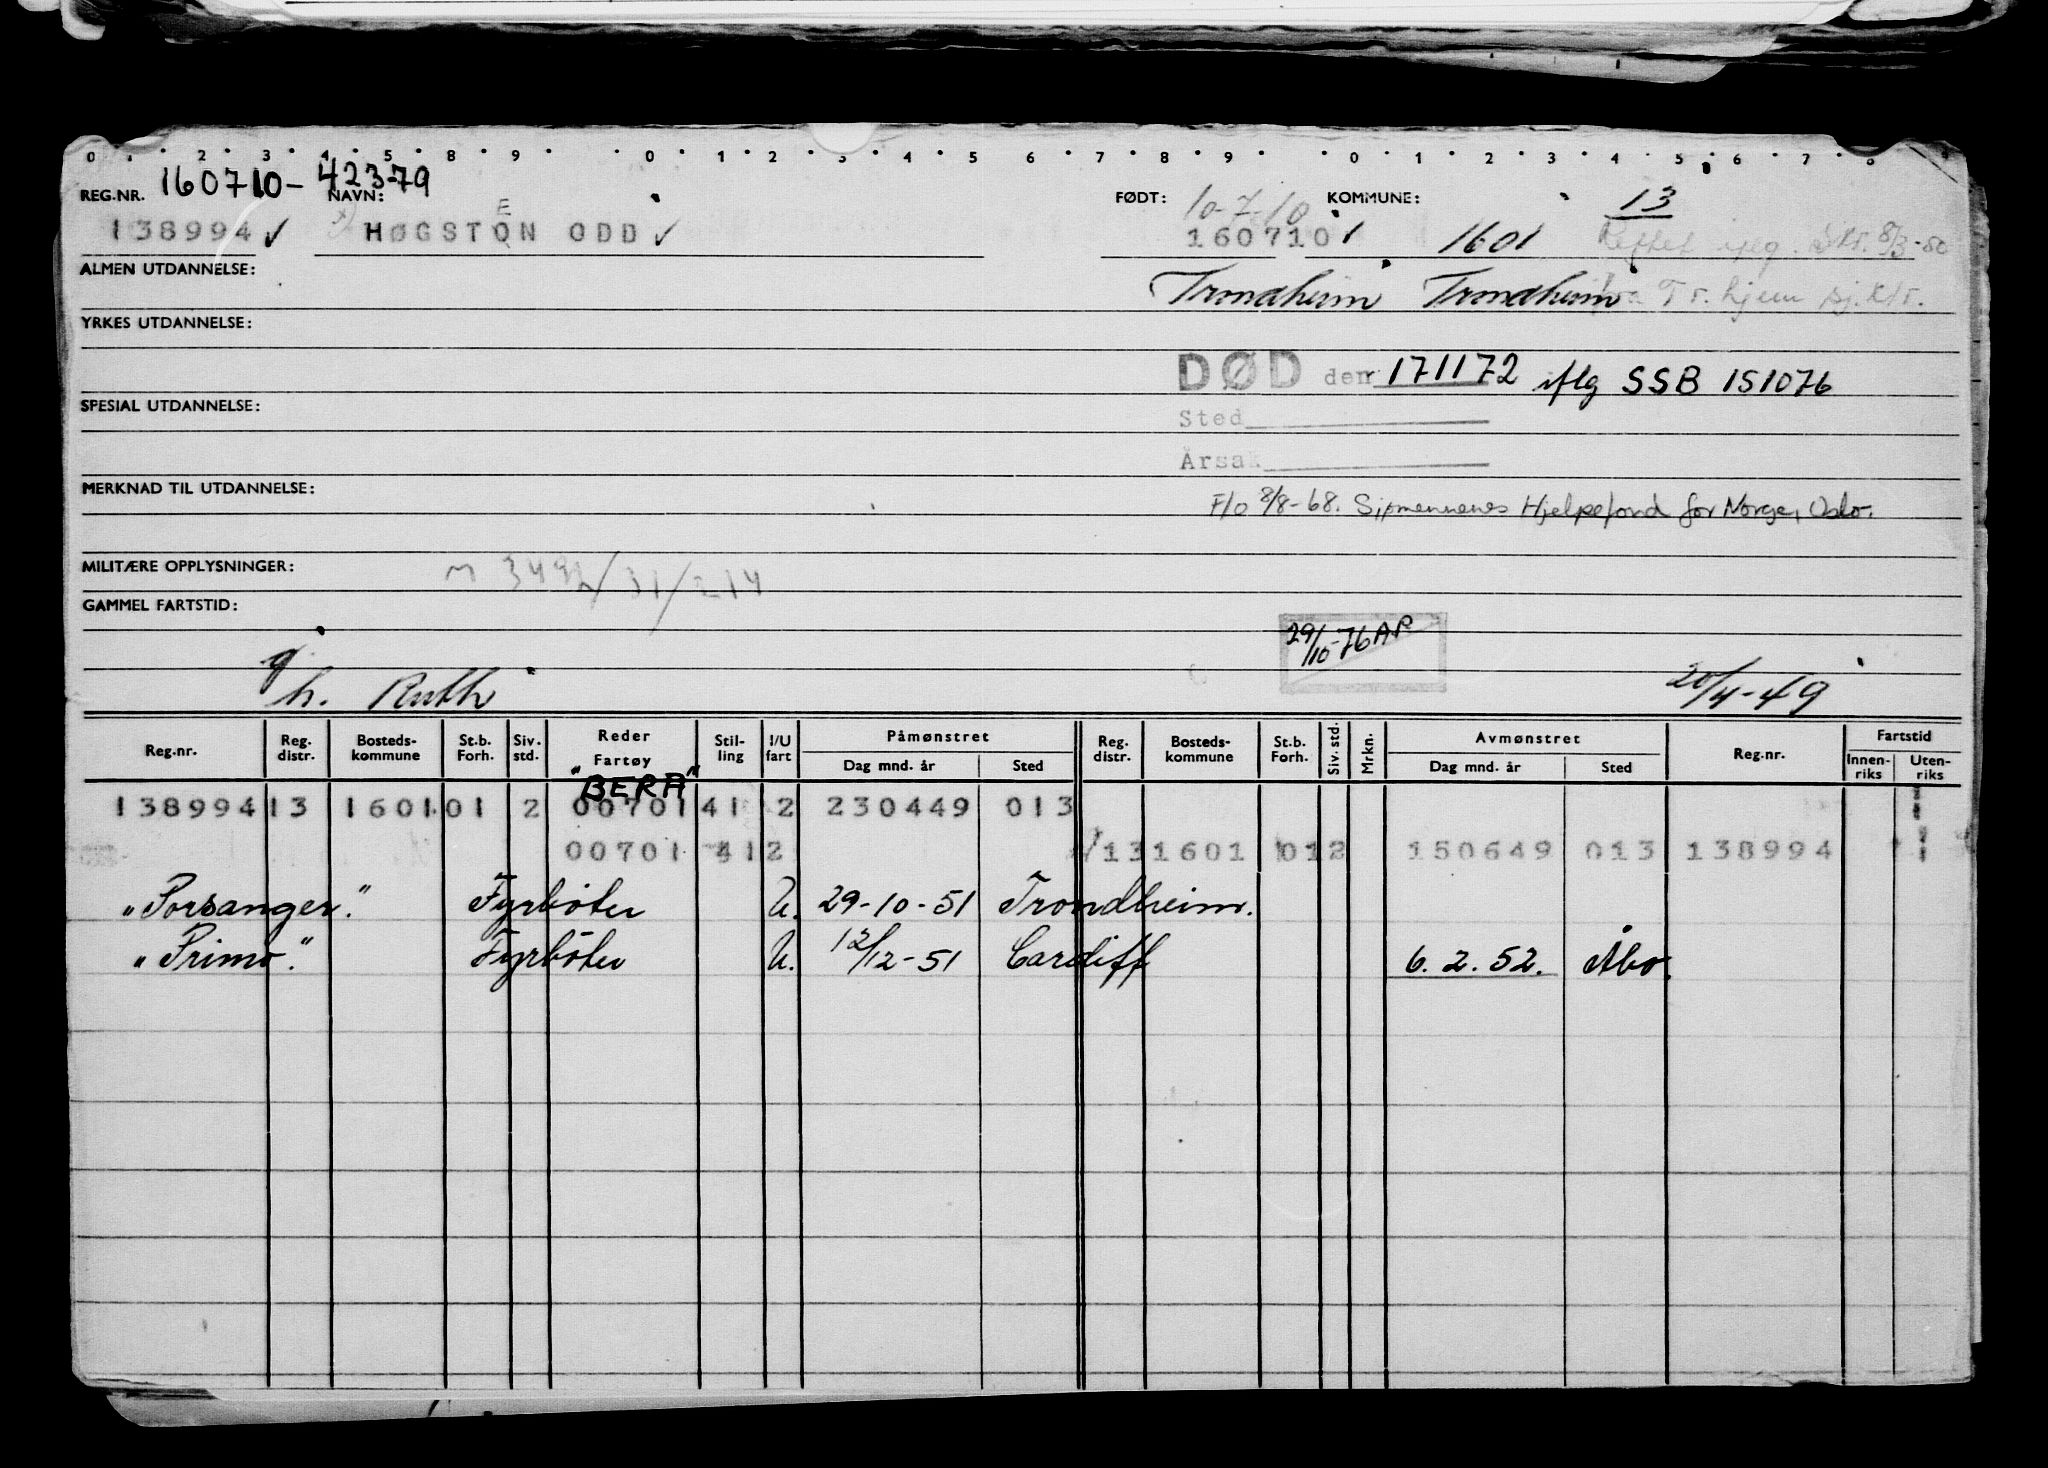 0 1 2 3 4 5 8 9 0 1 2 3 4 5 6 7 8 9 0 1 2 3 4 5 6 7 8
REG.NR. 160710-42379 NAVN: FØDT: 10-7-10 KOMMUNE: 13
138994 ✓ HØGSTON ODD ✓ 160710 1601 8/3-50
E
ALMEN UTDANNELSE: Trondheim Trondheim fra Tr.hjem sj.ktr.
YRKES UTDANNELSE:
DØD den 171172 iflg SSB 151076
SPESIAL UTDANNELSE: Sted
Årsak
MERKNAD TIL UTDANNELSE: F/o 8/8-68. Sjømennenes Hjelpefond for Norge, Oslo.
MILITÆRE OPPLYSNINGER: M 3492/31/214
GAMMEL FARTSTID:
29/10-76 AP
g
h. Ruth 20/4-49
Reg.nr. Reg. distr. Bosteds-kommune St.b. Forh. Siv. std. Reder Fartøy Stil-ling I/U fart Påmønstret Dag mnd. år Sted Reg. distr. Bosteds-kommune St.b. Forh. Siv. std. Mrkn. Avmønstret Dag mnd. år Sted Reg.nr. Fartstid Innen-riks Uten-riks
"BERA"
138994 13 1601 01 2 00701 41 2 230449 013
00701 41 2 13 1601 01 2 150649 013 138994
"Porsanger." Fyrbøter U. 29-10-51 Trondheim.
"Primo." Fyrbøter U. 12/12-51 Cardiff 6.2.52. Åbo.